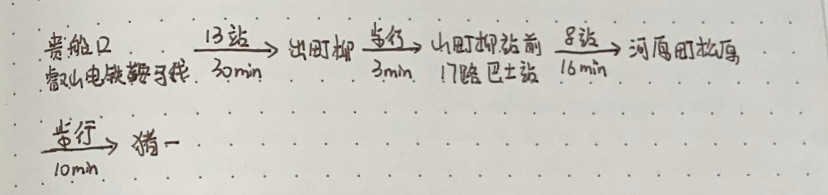 贵船口 13站 30min → 出町柳 步行 3min → 出町柳站前 8站 16min → 河原町松原
叡山电铁鞍马线 17路巴士站
步行 10min → 猪一